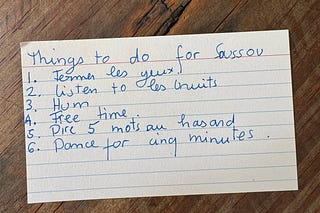 Things to do for Sassou
1. Fermer les yeux
2. Listen to les bruits
3. Hum
4. Free time.
5. Dire 5 mots au hasard
6. Dance for cinq minutes.